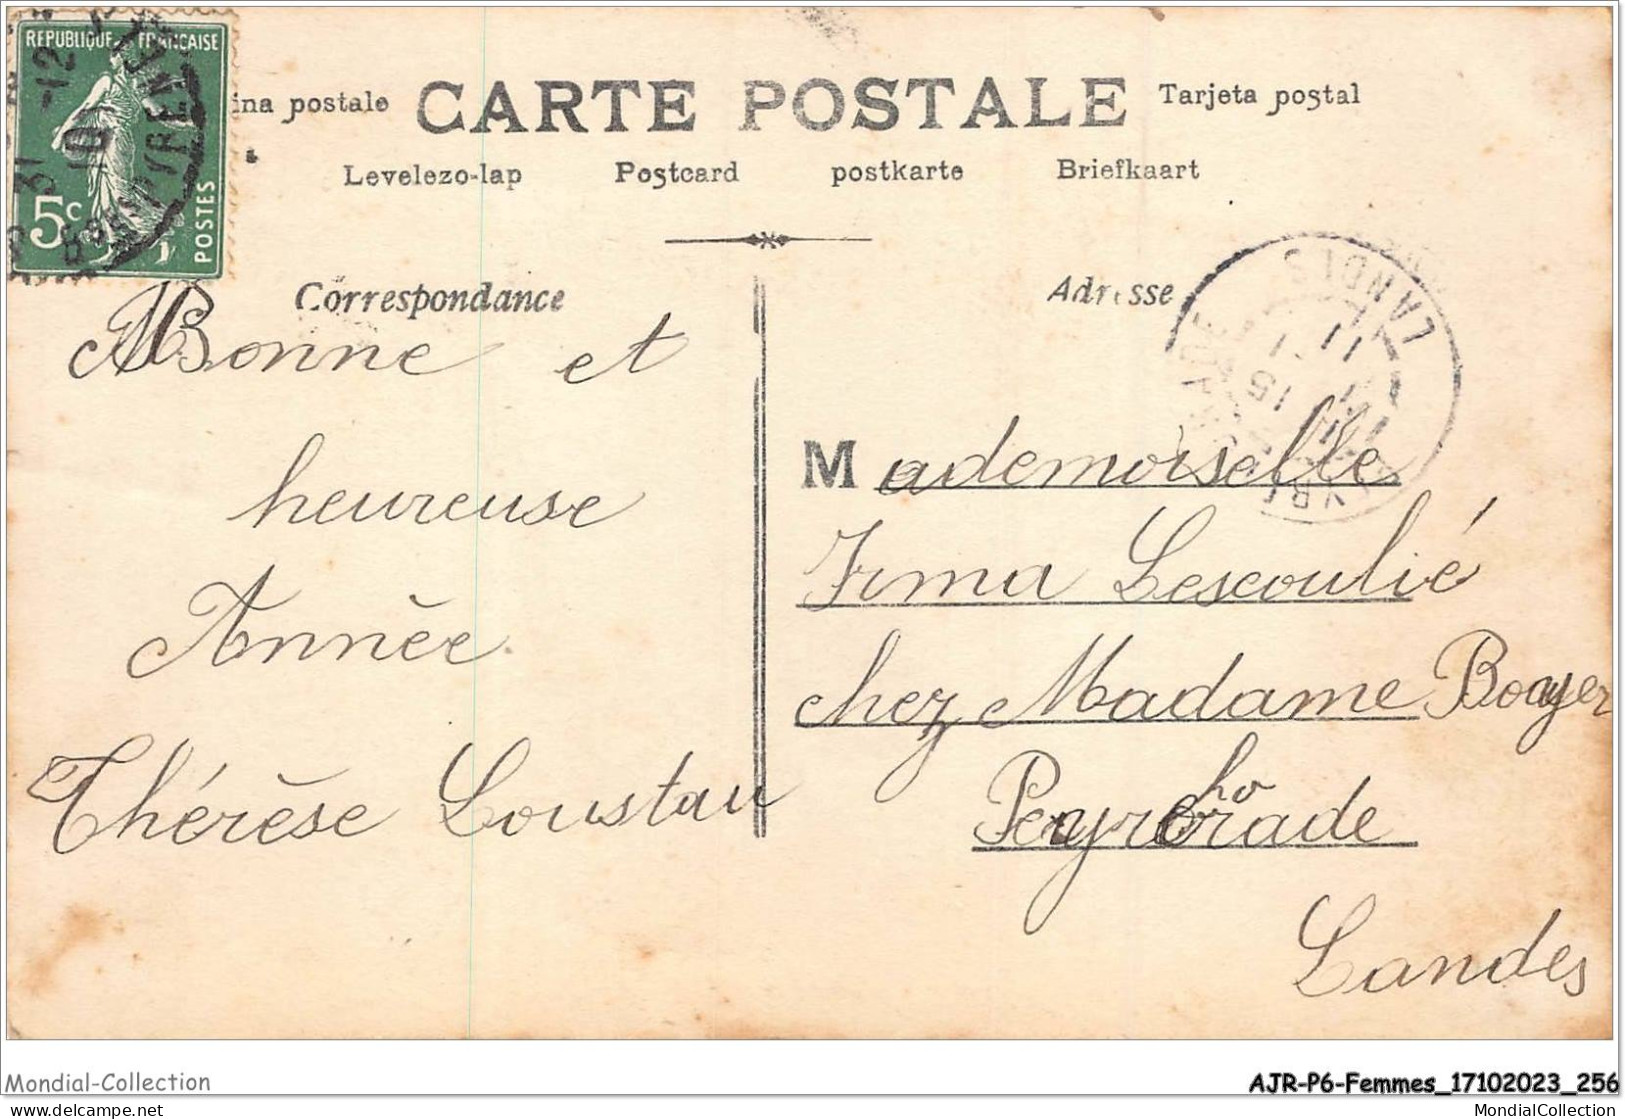 REPUBLIQUE FRANCAISE
5c
POSTES
31 -12
10
ina postale CARTE POSTALE Tarjeta postal
Levelezo-lap Postcard postkarte Briefkaart
Correspondance
Adresse
LANDES
Bonne et
heureuse
Annèe
Thérèse Loustau
Mademoiselle
Irma Lescoulié
chez Madame Boayer
Peyrehorade
Landes
Mondial-Collection
AJR-P6-Femmes_17102023_256
delcampe.net
MondialCollection